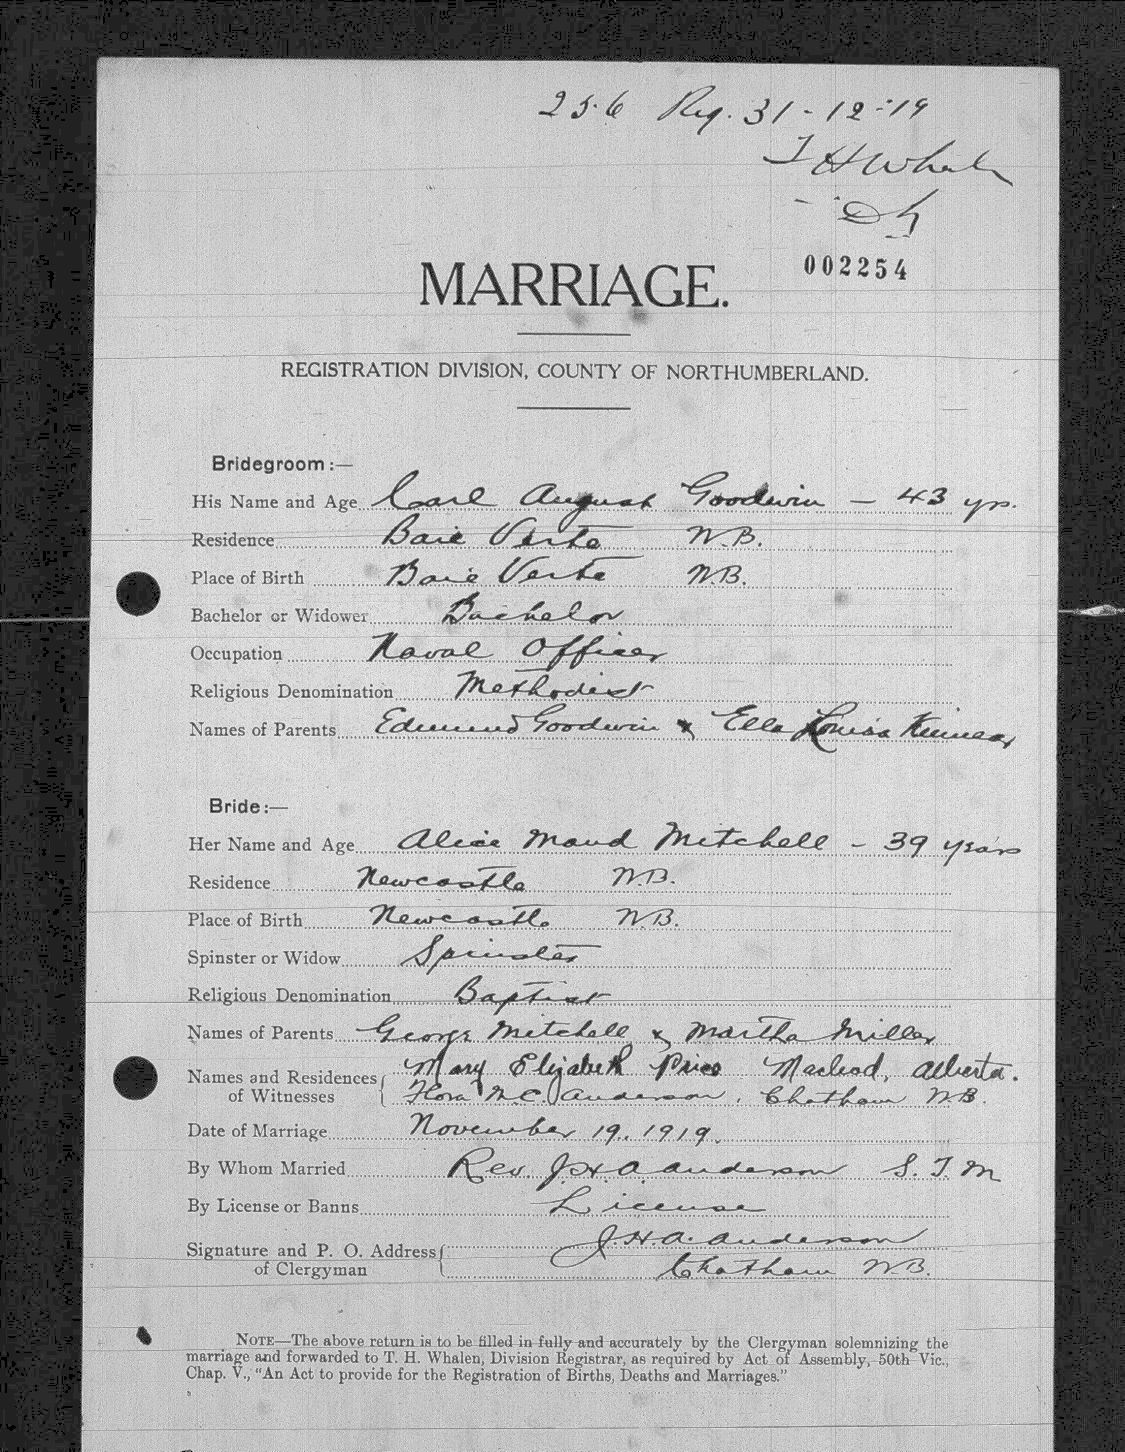 256 Reg. 31-12-19
T H Whalen
DR
002254
MARRIAGE.
REGISTRATION DIVISION, COUNTY OF NORTHUMBERLAND.
Bridegroom:—
His Name and Age Carl August Goodwin — 43 yrs.
Residence Baie Verte N.B.
Place of Birth Baie Verte N.B.
Bachelor or Widower Bachelor
Occupation Naval Officer
Religious Denomination Methodist
Names of Parents Edmund Goodwin & Ella Louisa Kinnear
Bride:—
Her Name and Age Alice Maud Mitchell - 39 years
Residence Newcastle N.B.
Place of Birth Newcastle N.B.
Spinster or Widow Spinster
Religious Denomination Baptist
Names of Parents George Mitchell & Martha Miller
Names and Residences of Witnesses { Mary Elizabeth Price Macleod, Alberta.
Flora McC. Anderson, Chatham N.B.
Date of Marriage November 19, 1919.
By Whom Married Rev. J.H.A. Anderson S.T.M
By License or Banns License
Signature and P. O. Address of Clergyman { J.H.A. Anderson
Chatham N.B.
NOTE—The above return is to be filled in fully and accurately by the Clergyman solemnizing the
marriage and forwarded to T. H. Whalen, Division Registrar, as required by Act of Assembly, 50th Vic.,
Chap. V., “An Act to provide for the Registration of Births, Deaths and Marriages.”